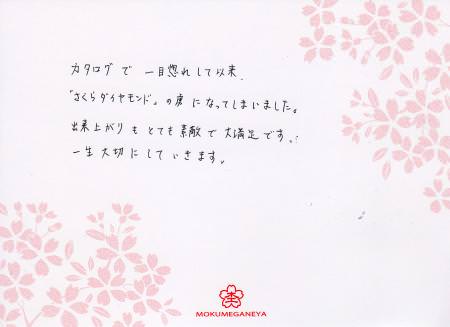 カタログで一目惚れして以来、
「さくらダイヤモンド」の虜になってしまいました。
出来上がりもとても素敵で大満足です!
一生大切にしていきます。
MOKUMEGANEYA